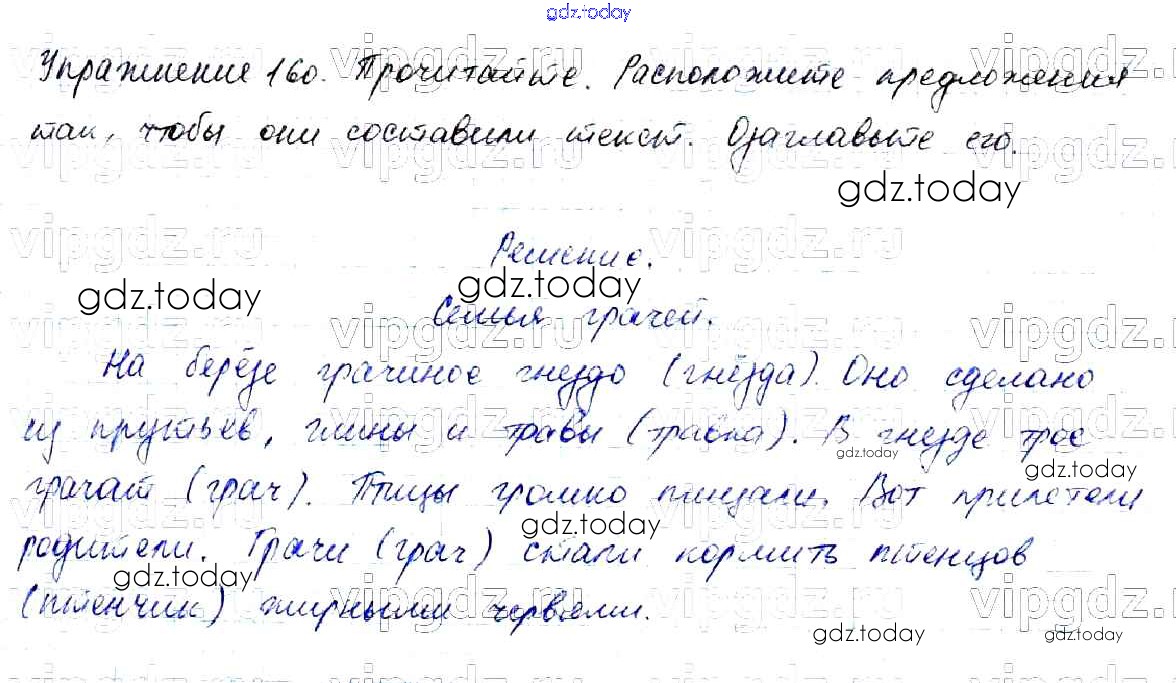 gdz.today
Упражнение 160. Прочитайте. Расположите предложения
так, чтобы они составили текст. Озаглавьте его.
gdz.today
Решение.
gdz.today gdz.today
Семья грачей.
На берёзе грачиное гнездо (гнёзда). Оно сделано
из прутьев, глины и травы (травка). В гнезде трое
gdz.today gdz.today
грачат (грач). Птицы громко пищали. Вот прилетели
gdz.today
родители. Грачи (грач) стали кормить птенцов
gdz.today
(птенчик) жирными червями.
gdz.today gdz.today